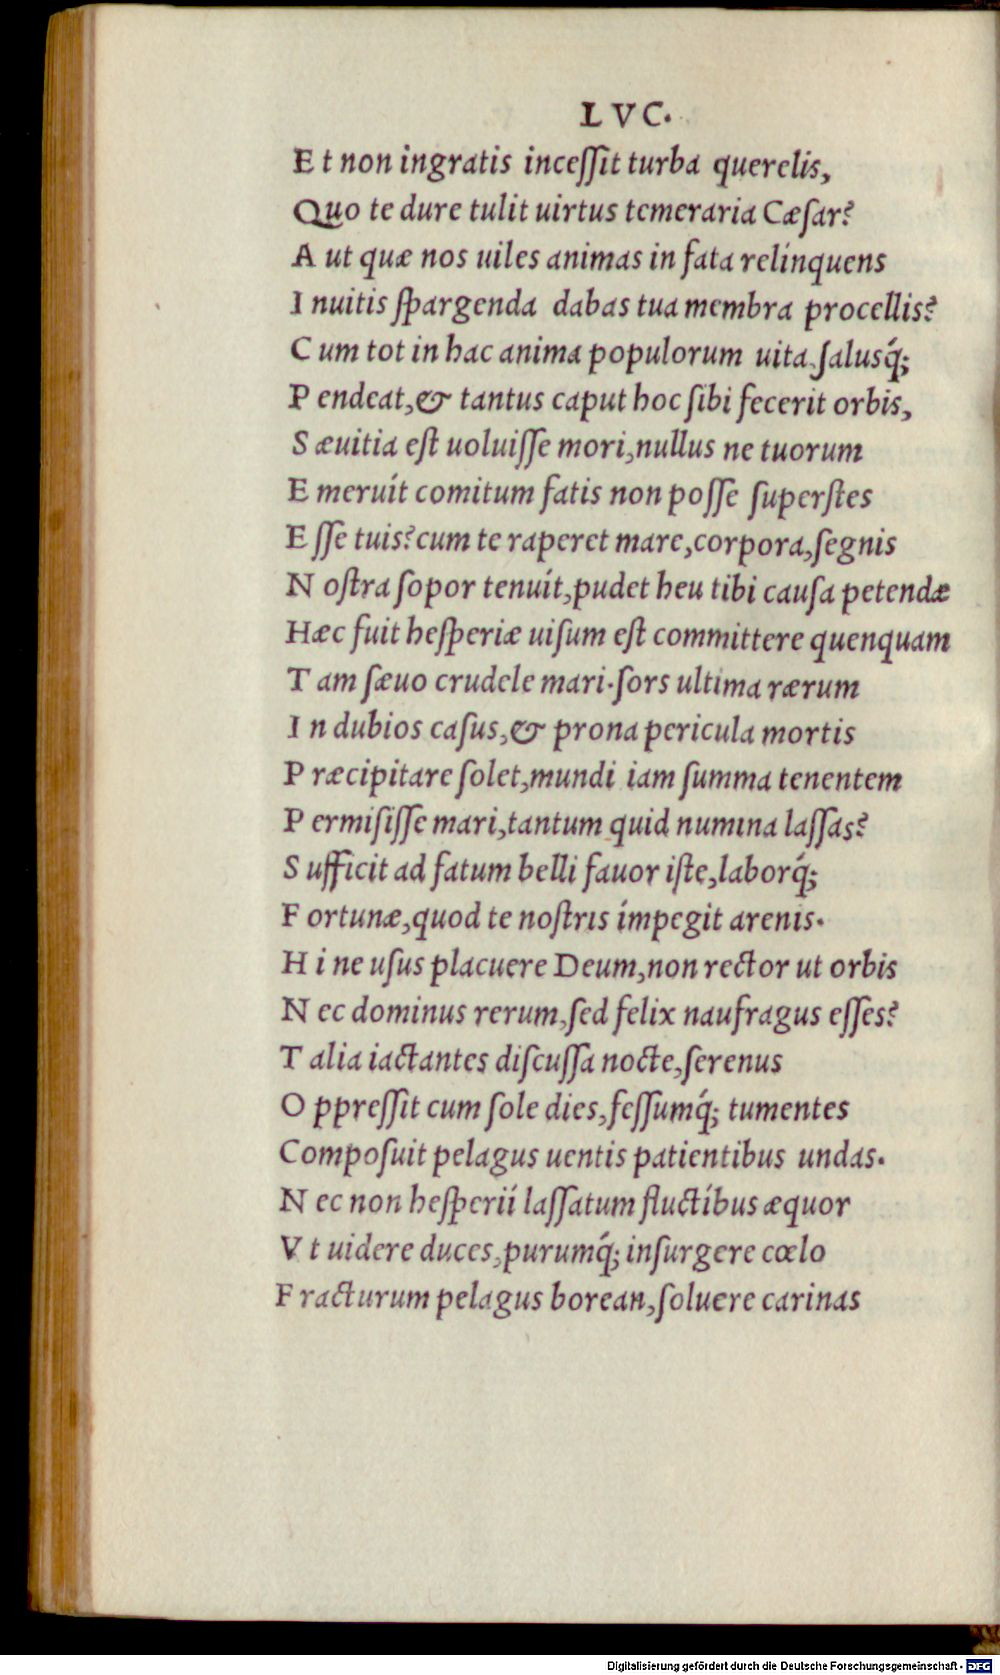 LVC.
E t non ingratis inceſſit turba querelis,
Quo te dure tulit uirtus temeraria Cæſar?
A ut quæ nos uiles animas in fata relinquens
I nuitis ſpargenda dabas tua membra procellis?
C um tot in hac anima populorum uita, ſalusq́;
P endeat, & tantus caput hoc ſibi fecerit orbis,
S æuitia eſt uoluiſſe mori, nullus ne tuorum
E meruít comitum fatis non poſſe ſuperſtes
E ſſe tuis? cum te raperet mare, corpora, ſegnis
N oſtra ſopor tenuít, pudet heu tibi cauſa petendæ
Hæc fuit heſperiæ uiſum eſt committere quenquam
T am ſæuo crudele mari. ſors ultima rærum
I n dubios caſus, & prona pericula mortis
P ræcipitare ſolet, mundi iam ſumma tenentem
P ermiſiſſe mari, tantum quid numina laſſas?
S ufficit ad fatum belli fauor iſte, laborq́;
F ortunæ, quod te noſtris ímpegit arenis.
H i ne uſus placuere Deum, non rector ut orbis
N ec dominus rerum, ſed felix naufragus eſſes?
T alia iactantes diſcuſſa nocte, ſerenus
O ppreſſit cum ſole dies, feſſumq́; tumentes
Compoſuit pelagus uentis patientibus undas.
N ec non heſperií laſſatum fluctíbus æquor
V t uidere duces, purumq́; inſurgere cœlo
F racturum pelagus borean, ſoluere carinas
Digitalisierung gefördert durch die Deutsche Forschungsgemeinschaft - DFG